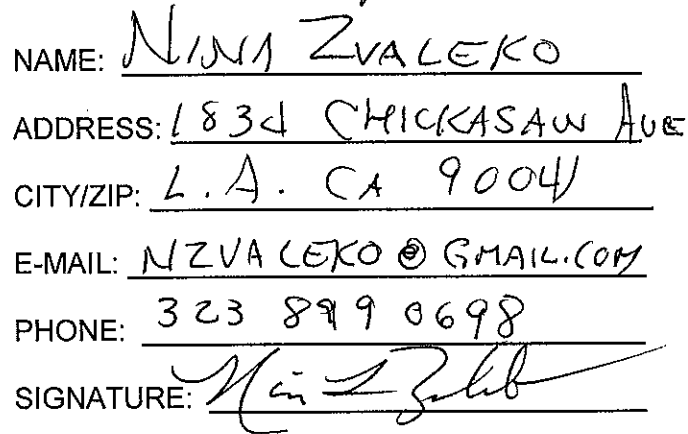 NAME: NINA ZVALEKO
ADDRESS: 1834 CHICKASAW AVE
CITY/ZIP: L.A. CA 90041
E-MAIL: NZVALEKO@GMAIL.COM
PHONE: 323 899 0698
SIGNATURE: